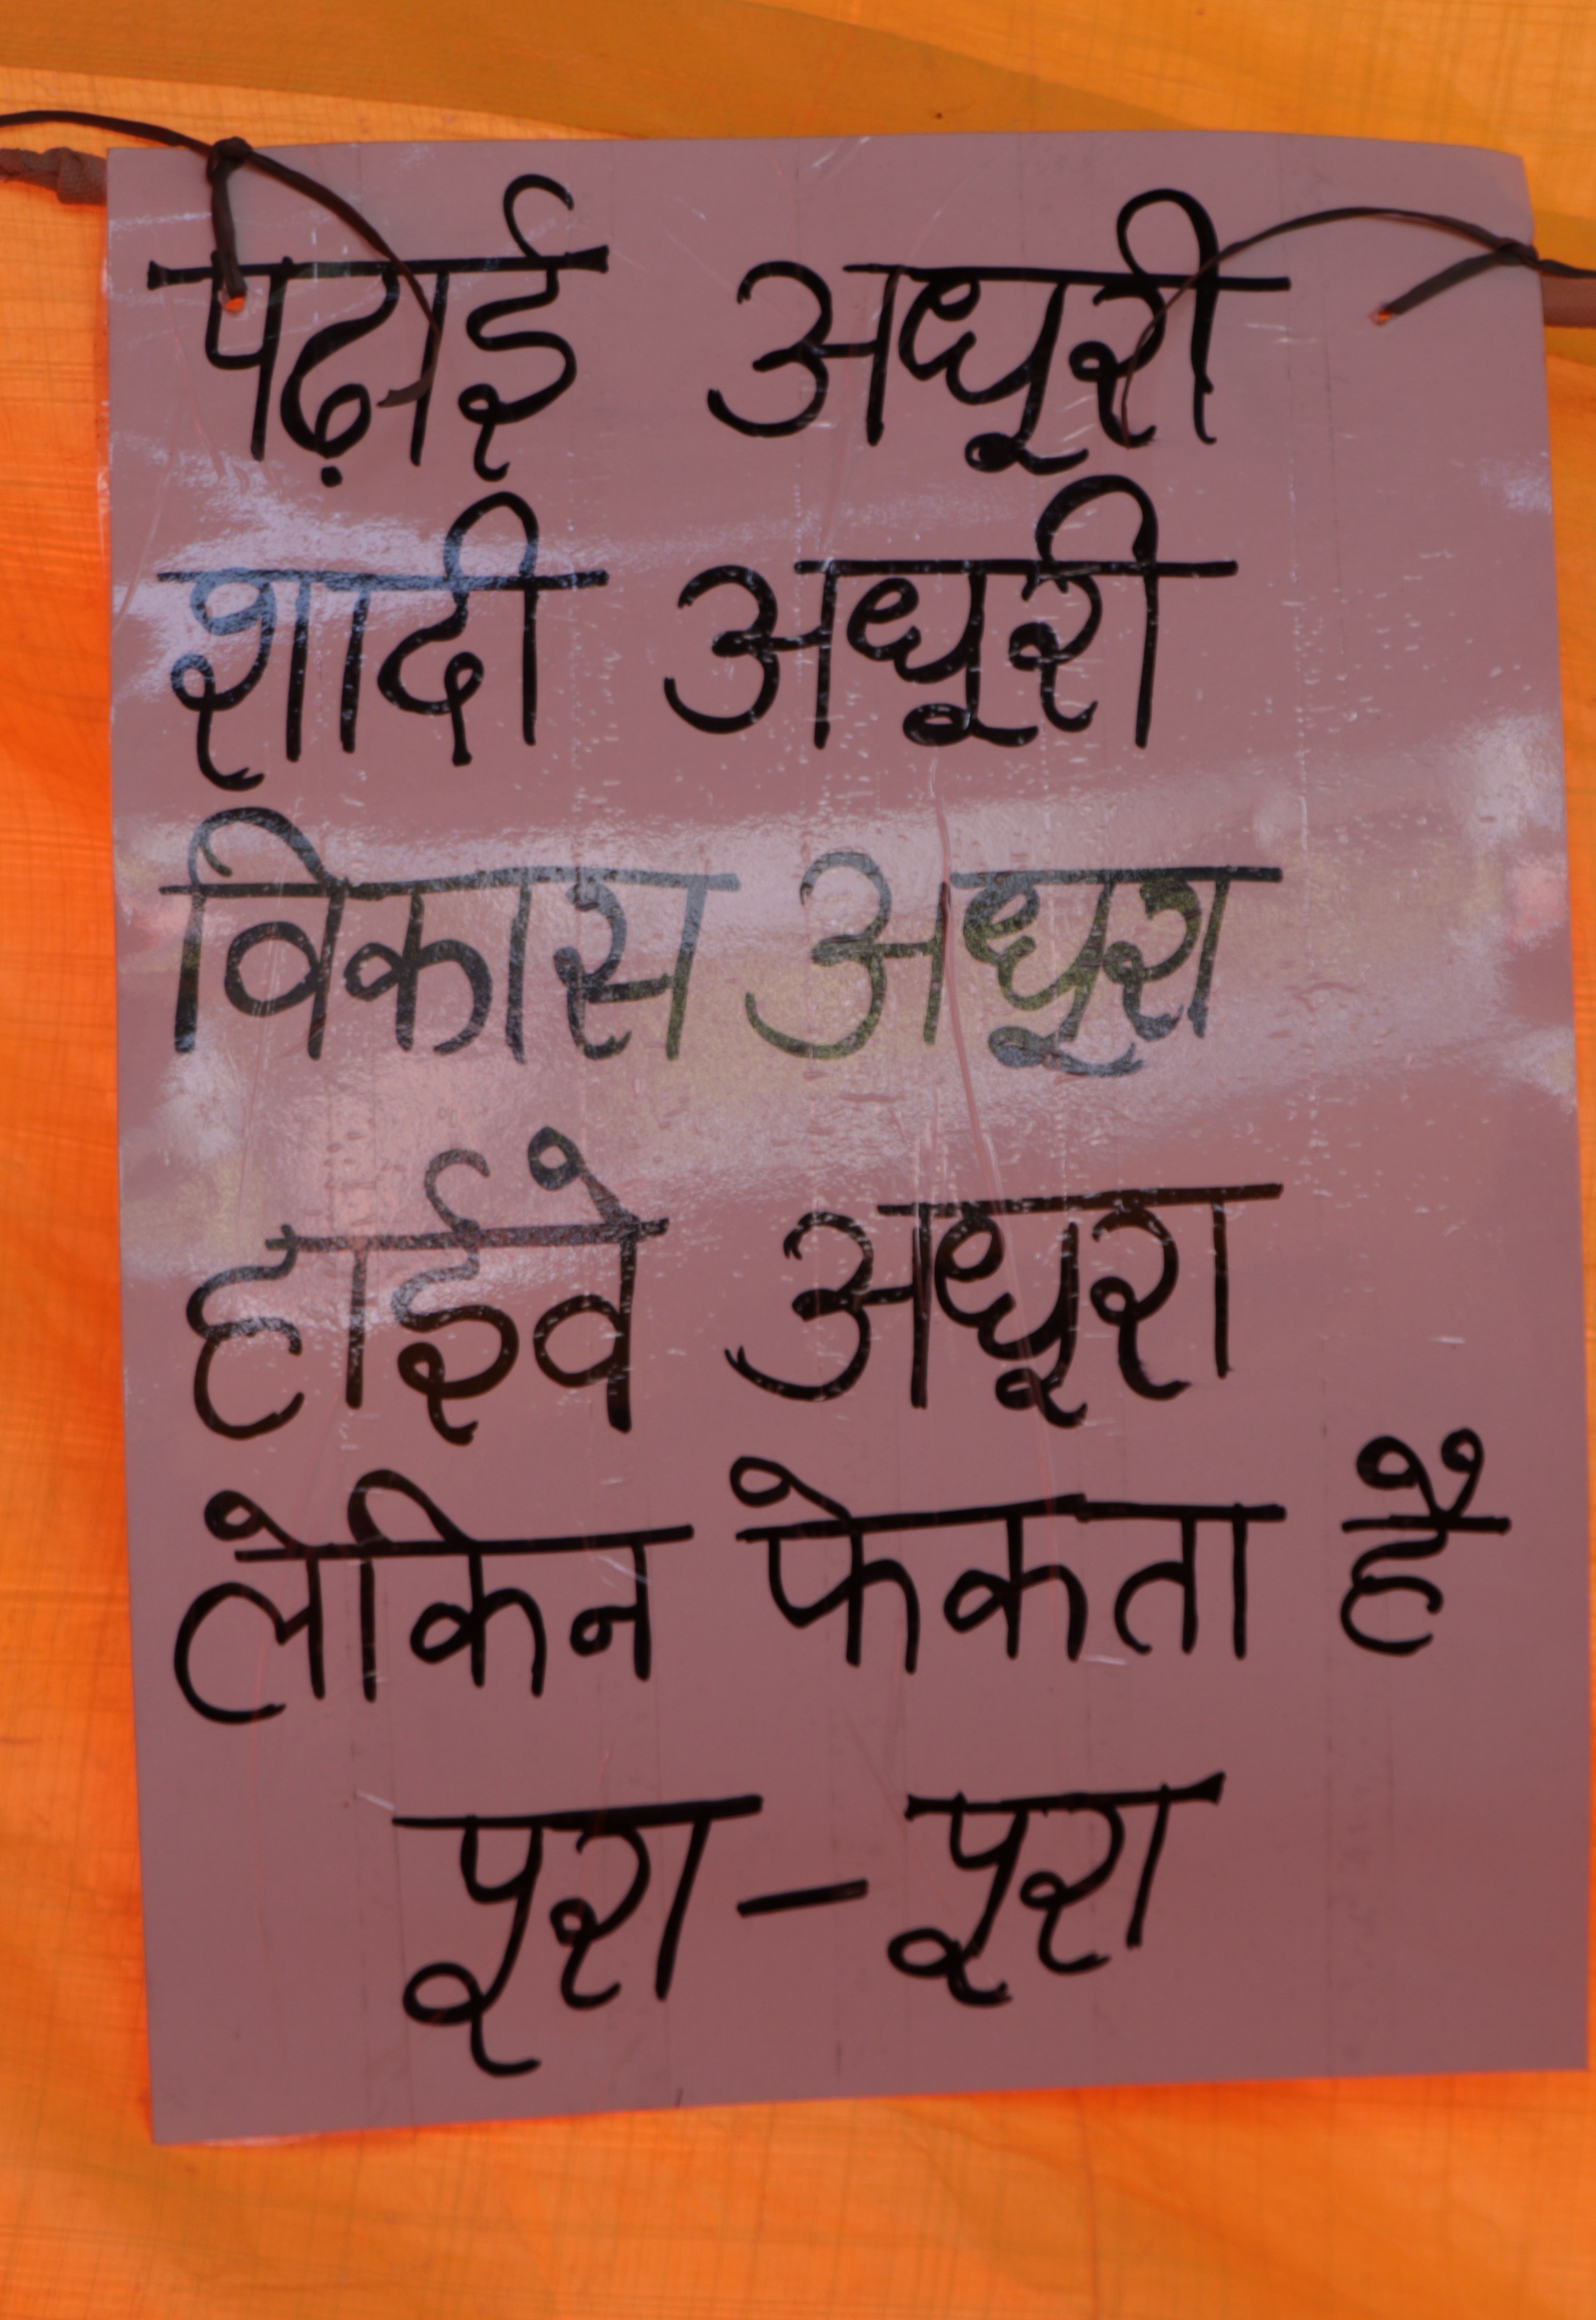 पढ़ाई अधूरी
शादी अधूरी
विकास अधूरा
हाईवे अधूरा
लेकिन फेकता है
पूरा - पूरा